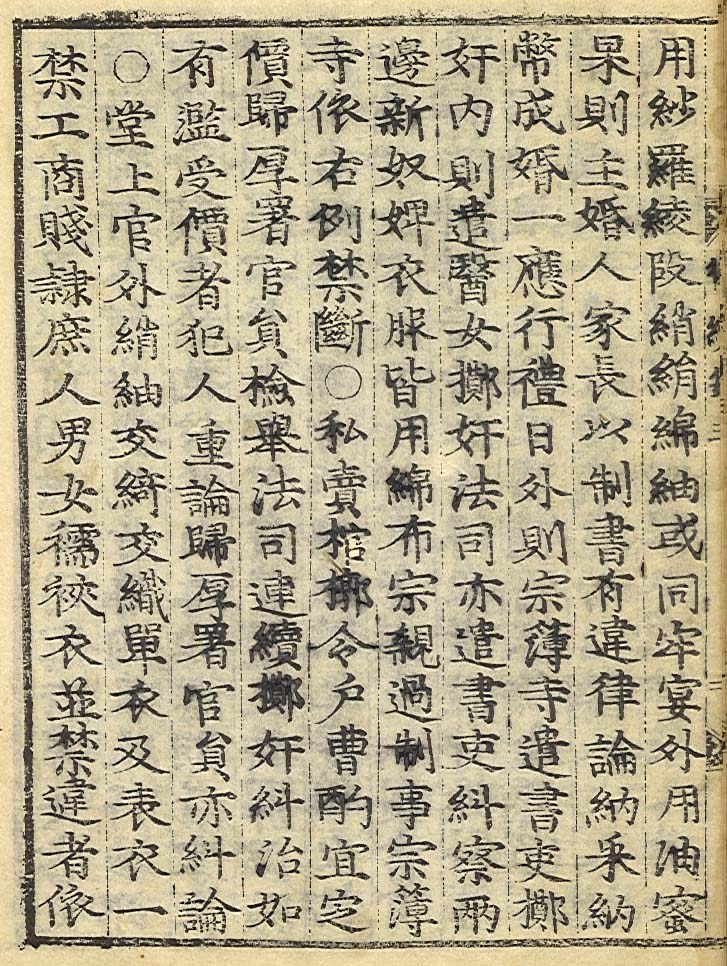 用紗羅綾段綃絹綿紬或同牢宴外用油蜜
果則主婚人家長以制書有違律論納采納
幣成婚一應行禮日外則宗薄寺遣書吏擲
奸內則遣醫女擲奸法司亦遣書吏糾察兩
邊新奴婢衣服皆用綿布宗親過制事宗薄
寺依右例禁斷○私賣棺槨令戶曹酌宜定
價歸厚署官貟檢舉法司連續擲奸糾治如
有濫受價者犯人重論歸厚署官貟亦糾論
○堂上官外綃紬交綺交織單衣及表衣一
禁工商賤隷庶人男女襦裌衣並禁違者依